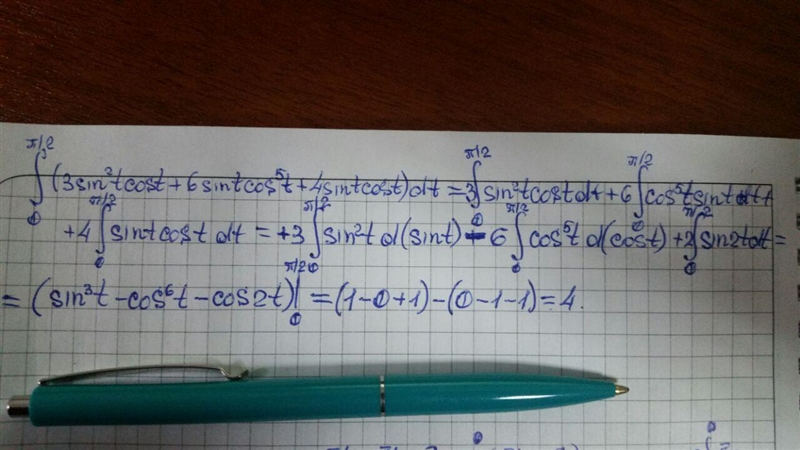 ∫₀^π/2 (3sin²t cost + 6 sint cos⁵t + 4sint cost) dt = 3∫₀^π/2 sin²t cost dt + 6 ∫₀^π/2 cos⁵t sint dt +
+ 4 ∫₀^π/2 sint cost dt = +3 ∫₀^π/2 sin²t d(sint) - 6 ∫₀^π/2 cos⁵t d(cost) + 2∫₀^π/2 sin2t dt =
= (sin³t - cos⁶t - cos2t)|₀^π/2 = (1-0+1) - (0-1-1) = 4.